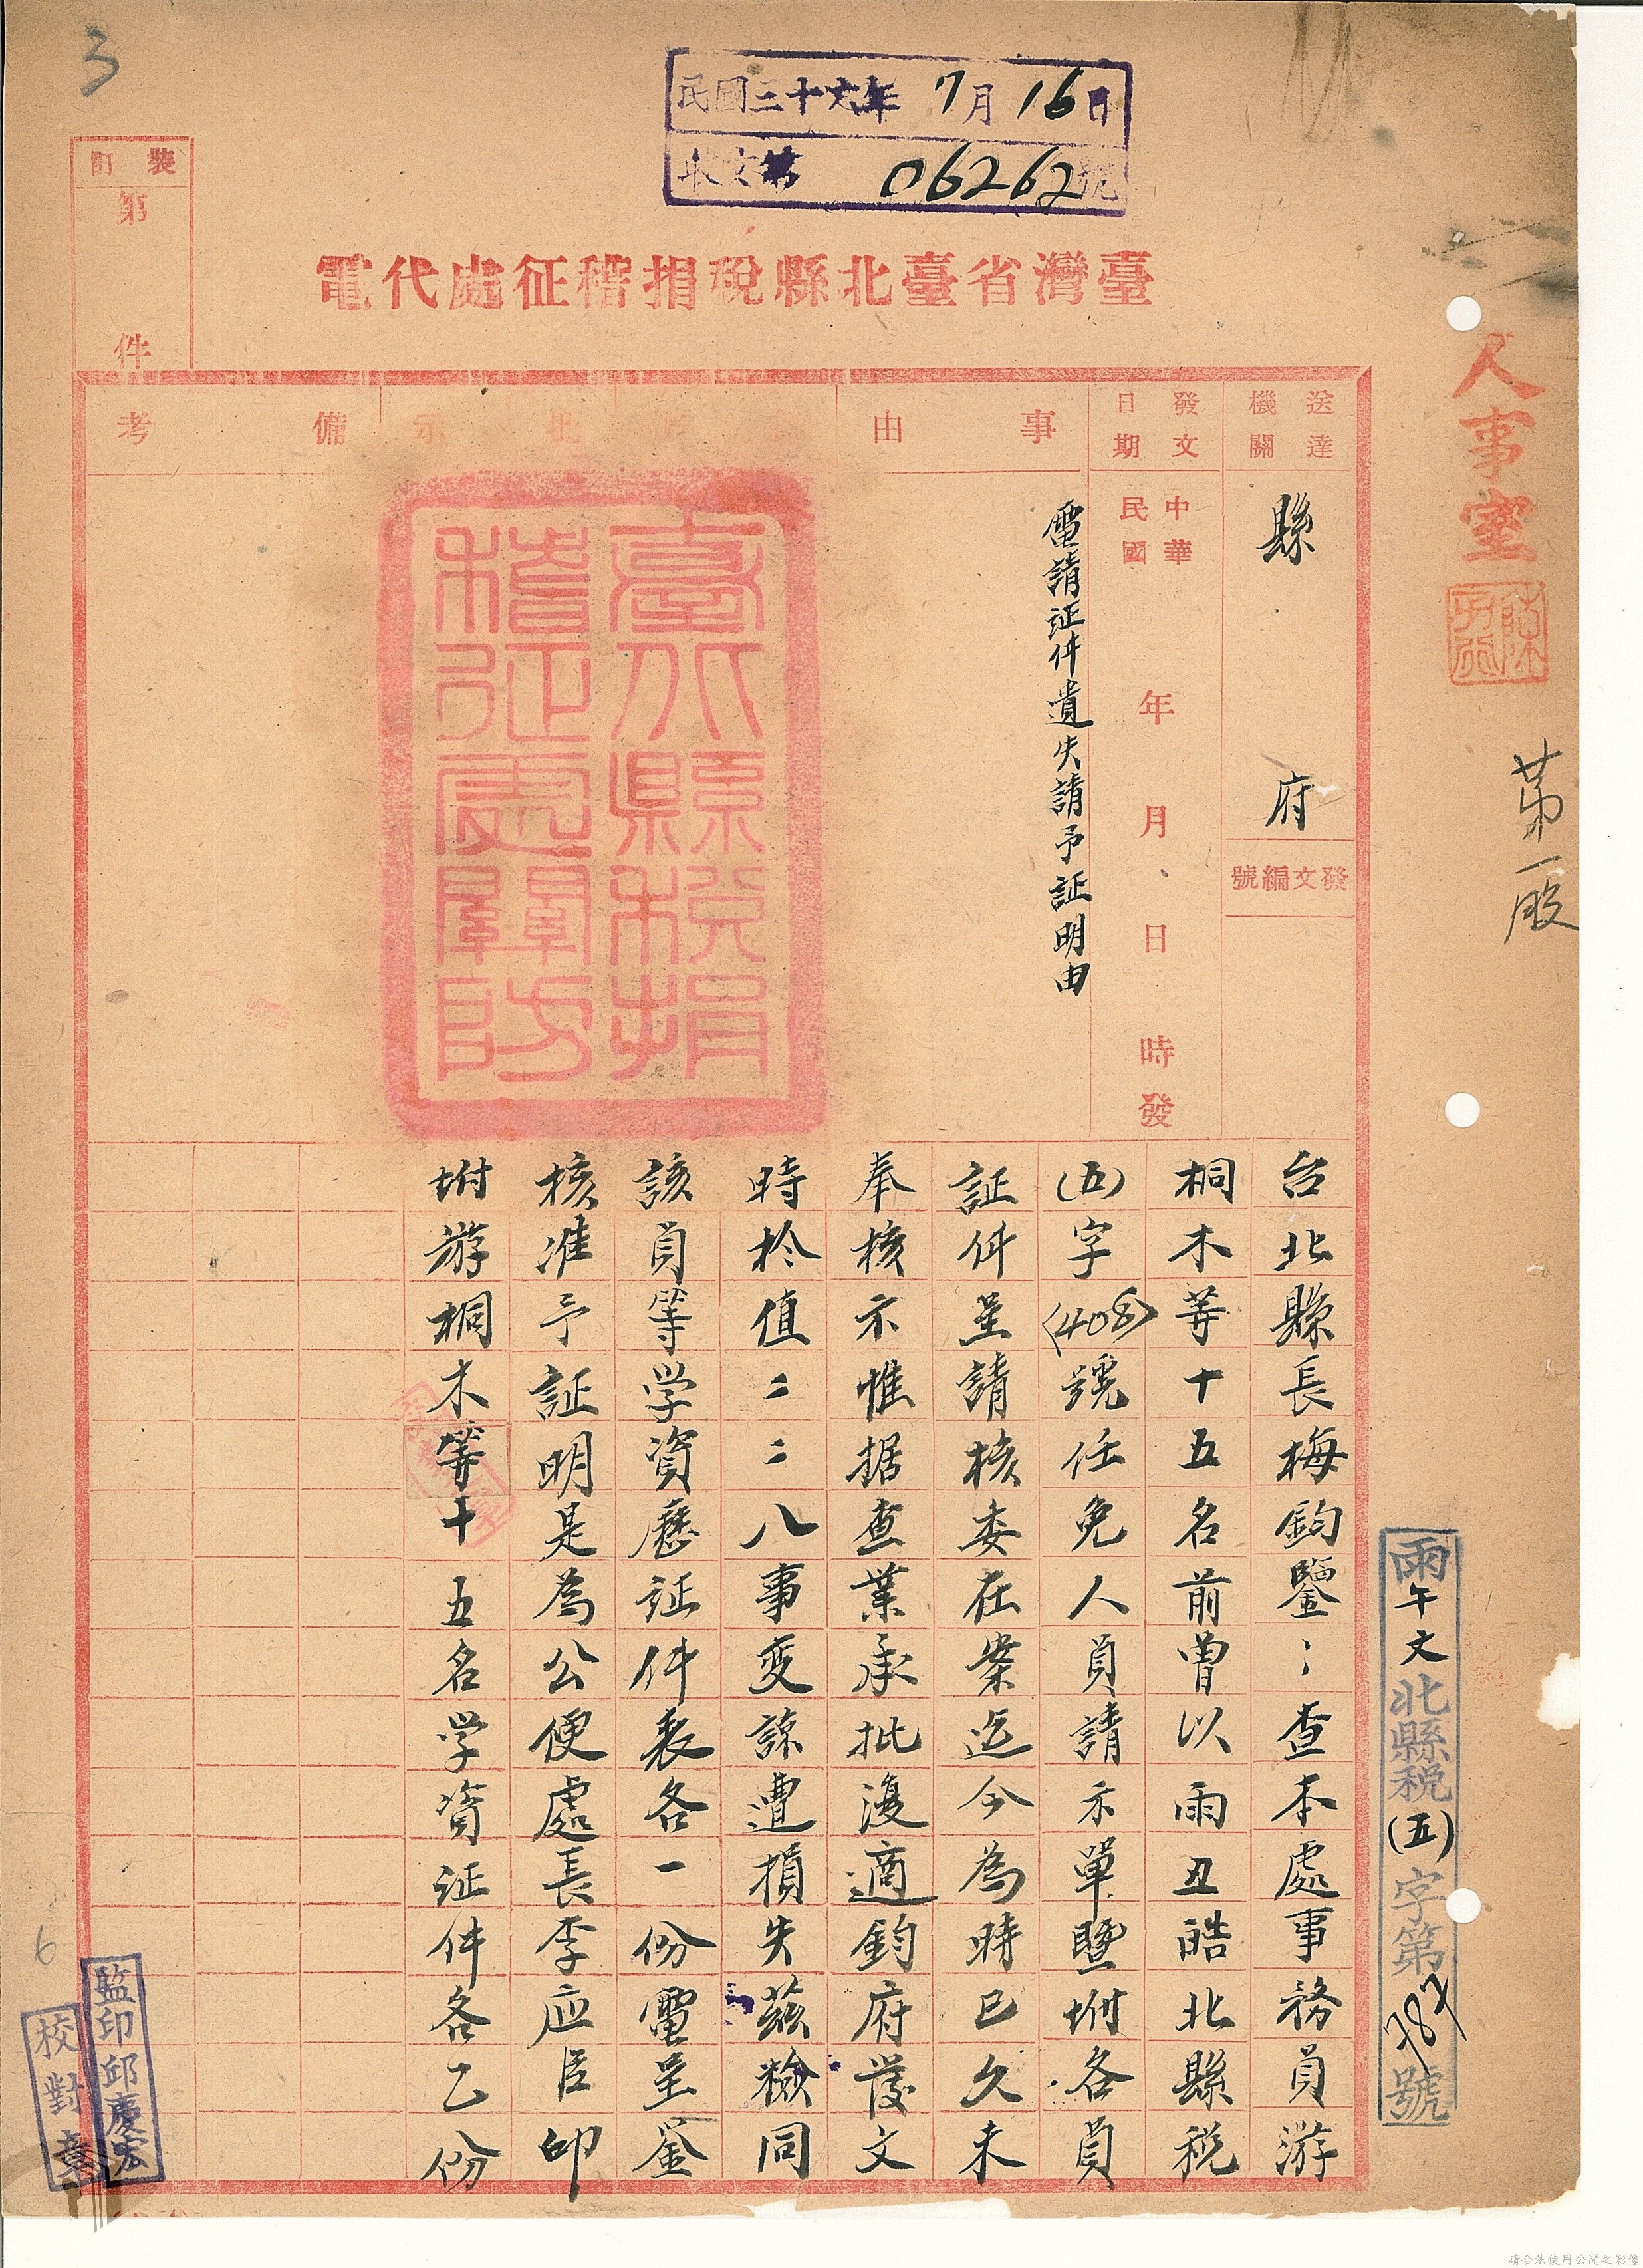 3
民國三十六年 7月16日
收文第 06262 號
裝訂
第 件
臺灣省臺北縣稅捐稽征處代電
人事室
第一股
送達機關
縣 府
發文編號
發文日期
中華民國 年 月 日 時發
事由
電請証件遺失請予証明由
批示
備考
臺北縣稅捐
稽征處關防
雨午文北縣稅(五)字第782號
台北縣長梅鈞鑒:查本處事務員游
桐木等十五名前曾以雨丑皓北縣稅
(五)字(408)號任免人員請示單暨坿各員
証件呈請核委在案迄今為時已久未
奉核示惟据查業承批復適鈞府發文
時於值二二八事变諒遭損失茲檢同
該員等学資歷証件表各一份電呈鉴
核准予証明是為公便處長李应臣印
坿游桐木等十五名学資証件各乙份
監印邱慶宏
校對章
6
請合法使用公開之影像